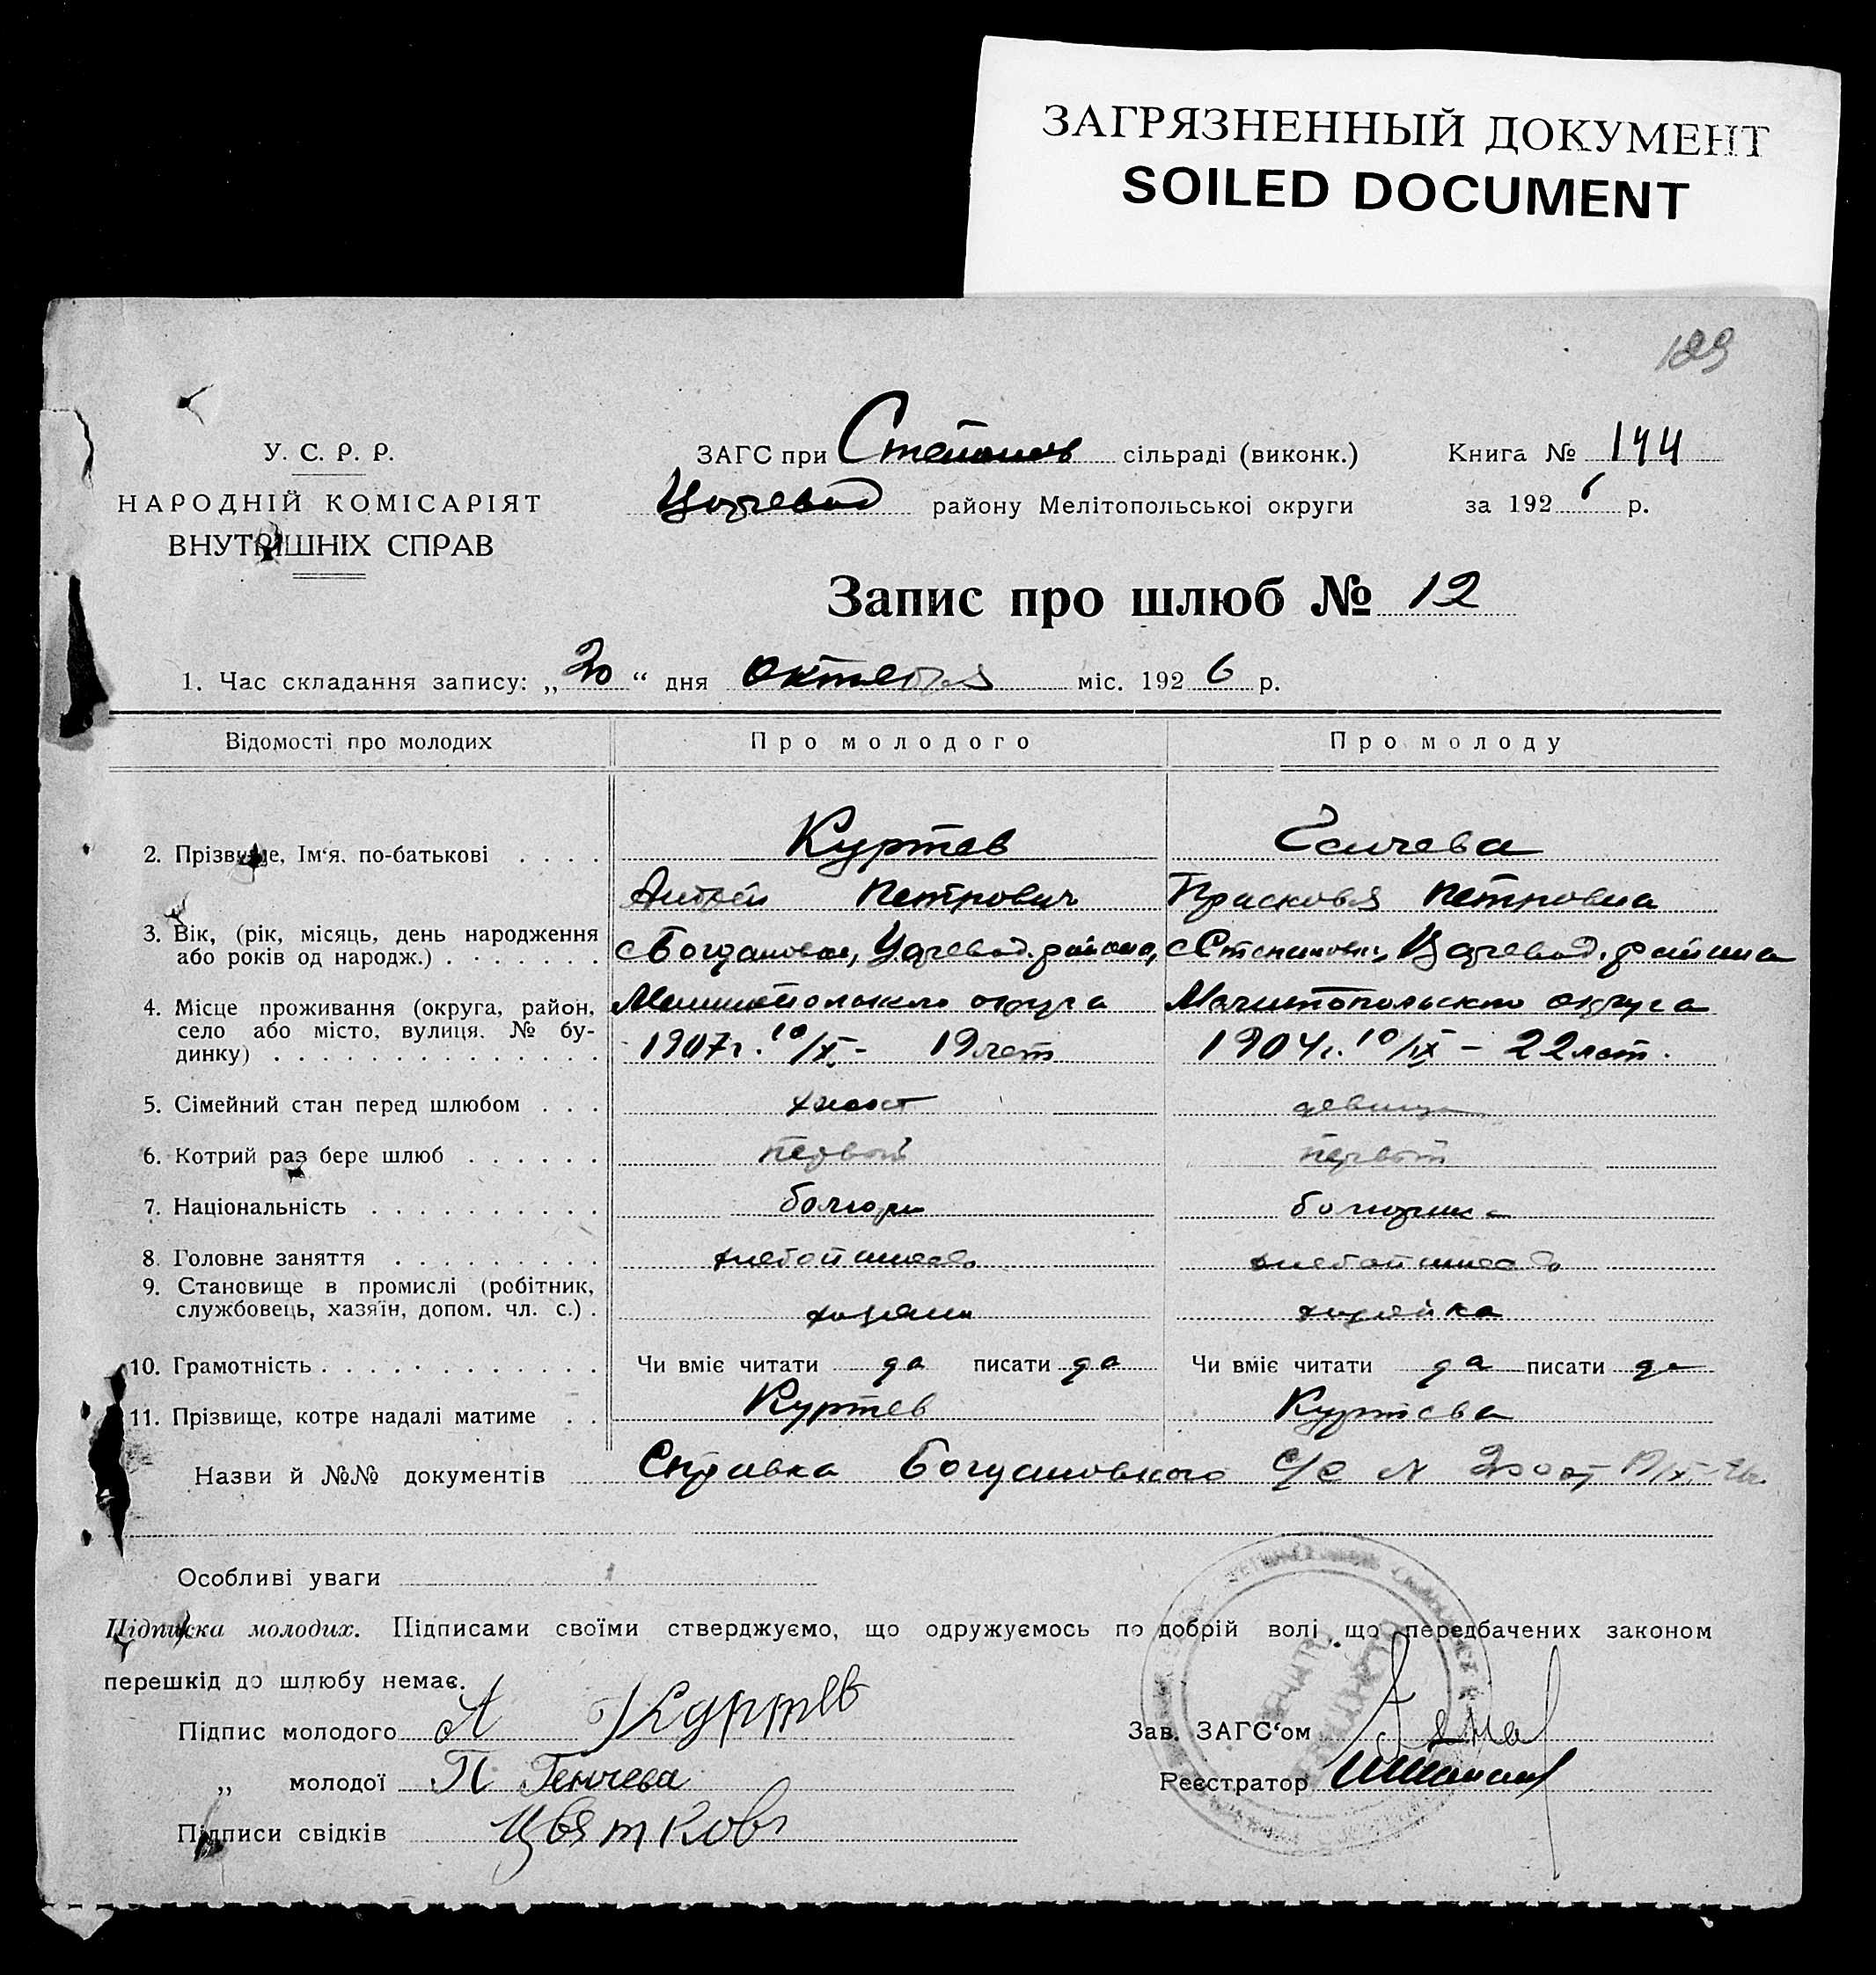 ЗАГРЯЗНЕННЫЙ ДОКУМЕНТ
SOILED DOCUMENT
189
У. С. Р. Р.
НАРОДНІЙ КОМІСАРІЯТ
ВНУТРІШНІХ СПРАВ
ЗАГС при Степанов сільраді (виконк.)
Царевод району Мелітопольської округи
Книга № 144
за 1926 р.
Запис про шлюб № 12
1. Час складання запису: „20“ дня октября міс. 1926 р.
Відомості про молодих Про молодого Про молоду
2. Прізвище, Ім'я, по-батькові . . . . Куртев Генчева
Андрей Петрович Прасковья Петровна
3. Вік, (рік, місяць, день народження
або років од народж.) . . . . . . . с Богдановка, Царевод. района, с Степановка, Царевод. района
4. Місце проживання (округа, район,
село або місто, вулиця, № бу-
динку) . . . . . . . . . . . . .
Мелитопольского округа Мелитопольского округа
1907 г. 10/X - 19 лет 1904 г. 10/IX - 22 лет.
5. Сімейний стан перед шлюбом . . . холост девица
6. Котрий раз бере шлюб . . . . . . первый первый
7. Національність . . . . . . . . . . болгарин болгарка
8. Головне заняття . . . . . . . . . хлебопашество хлебопашество
9. Становище в промислі (робітник,
службовець, хазяїн, допом. чл. с.) . хозяин хозяйка
10. Грамотність . . . . . . . . . . . . Чи вміє читати да писати да Чи вміє читати да писати да
11. Прізвище, котре надалі матиме . . Куртев Куртева
Назви й №№ документів Справка Богдановского С/С № 200 от
Особливі уваги
Підписка молодих. Підписами своїми стверджуємо, що одружуємось по добрій волі що передбачених законом
перешкід до шлюбу немає.
Підпис молодого А Куртев
Зав. ЗАГС'ом
„ молодої П Генчева
Реєстратор
Підписи свідків Цвятков